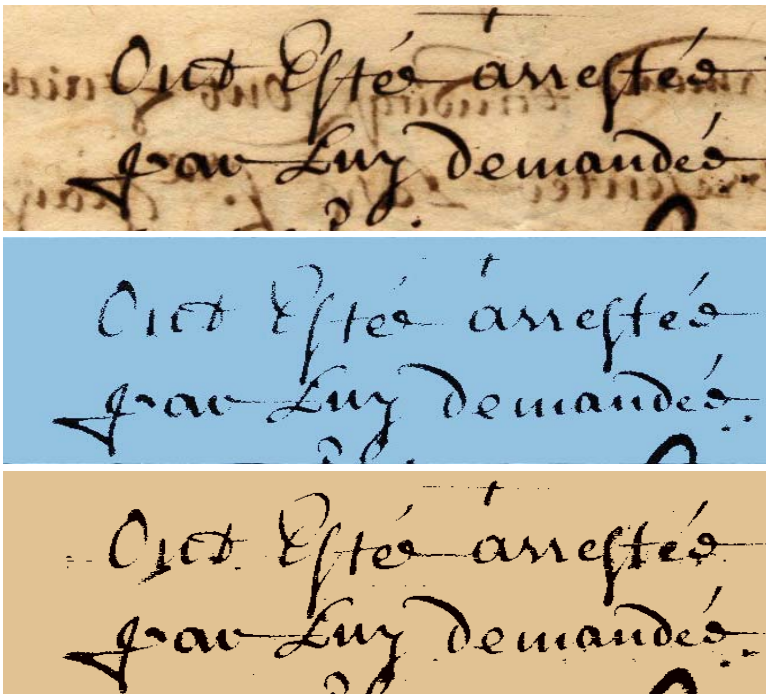 Ont Esté arrestéé
par Luy demandéé.
Ont Esté arrestéé
par Luy demandéé..
Ont Esté arrestéé
par Luy demandéé.